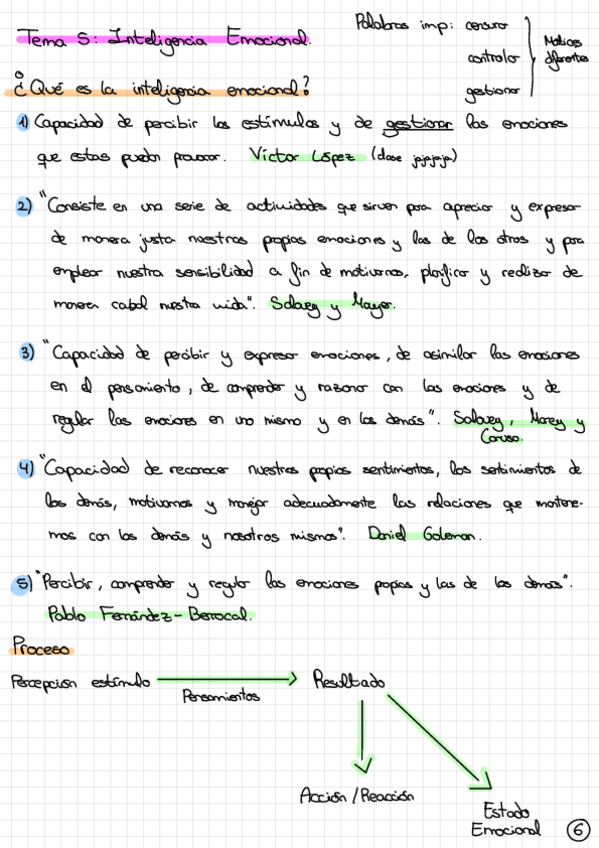 Tema 5: Inteligencia Emocional.
Palabras imp: censurar
controlar
gestionar
Matices
diferentes
¿Qué es la inteligencia emocional?
1) Capacidad de percibir los estímulos y de gestionar las emociones
que estas puedan provocar. Víctor López (clase jajajaja)
2) "Consiste en una serie de actividades que sirven para apreciar y expresar
de manera justa nuestras propias emociones y las de los otros y para
emplear nuestra sensibilidad a fin de motivarnos, planificar y realizar de
manera cabal nuestra vida". Salovey y Mayer.
3) "Capacidad de percibir y expresar emociones, de asimilar las emociones
en el pensamiento, de comprender y razonar con las emociones y de
regular las emociones en uno mismo y en los demás". Salovey, Marey y
Caruso.
4) "Capacidad de reconocer nuestros propios sentimientos, los sentimientos de
los demás, motivarnos y manejar adecuadamente las relaciones que mantene-
mos con los demás y nosotros mismos". Daniel Goleman.
5) "Percibir, comprender y regular las emociones propias y las de los demás".
Pablo Fernández-Berrocal.
Proceso
Percepción estímulo
Pensamientos
Resultado
Acción/Reacción
Estado
Emocional
6